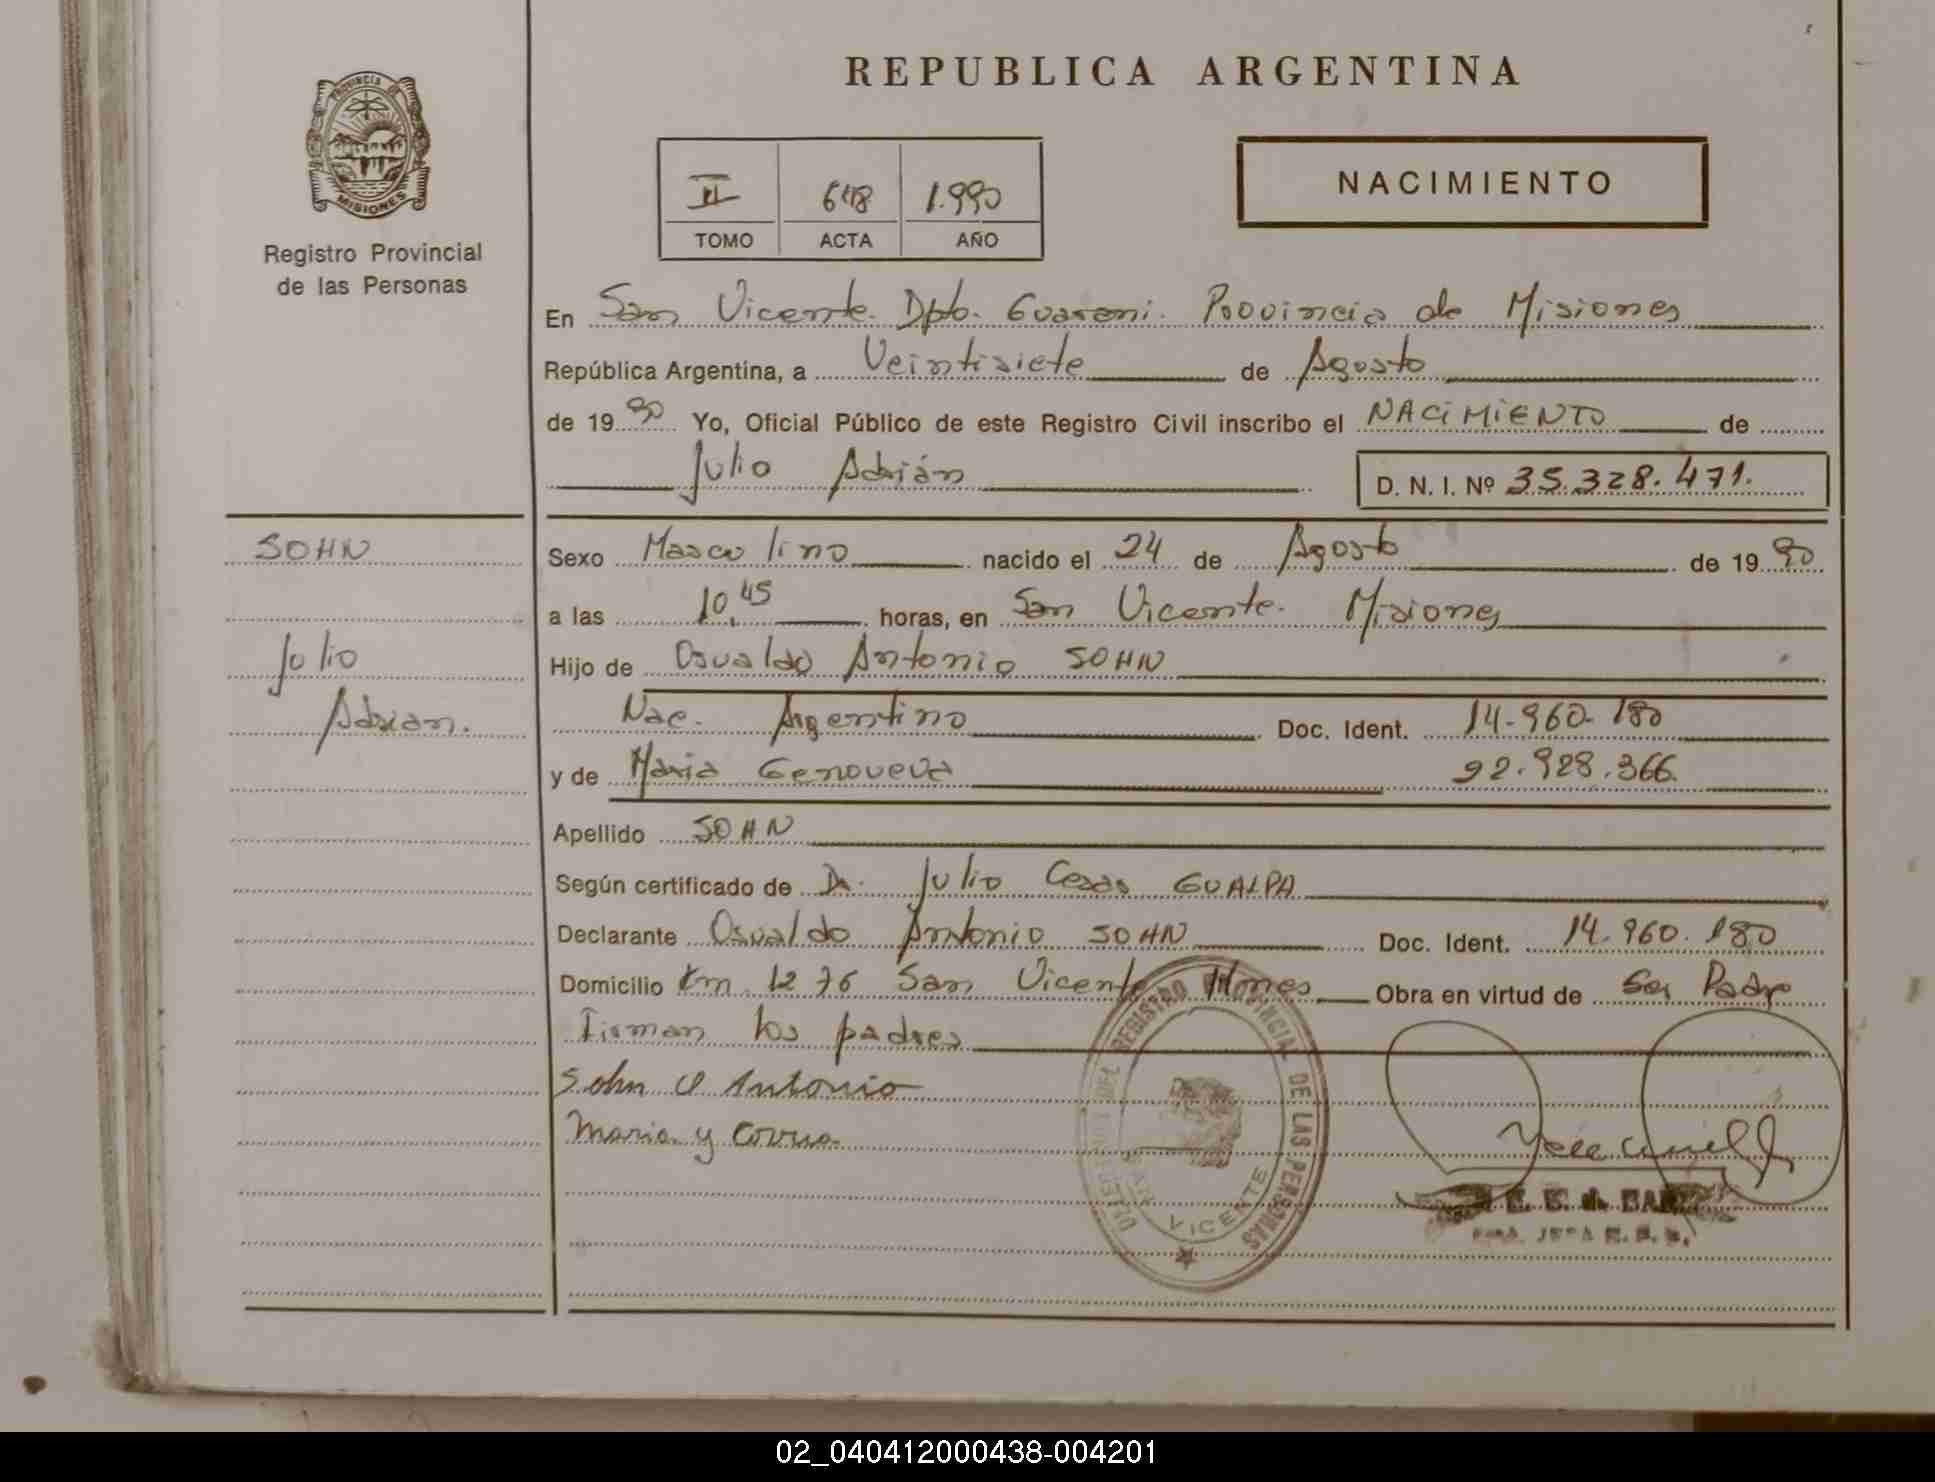 REPUBLICA ARGENTINA
PROVINCIA DE
MISIONES
Registro Provincial
de las Personas
II 648 1.990
TOMO ACTA AÑO
NACIMIENTO
En San Vicente. Dpto. Guarani. Provincia de Misiones
República Argentina, a Veintisiete de Agosto
de 1990 Yo, Oficial Público de este Registro Civil inscribo el NACIMIENTO de
Julio Adrián D. N. I. Nº 35.328.471.
SOHN
Julio
Adrian.
Sexo Masculino nacido el 24 de Agosto de 1990
a las 10,45 horas, en San Vicente. Misiones
Hijo de Osvaldo Antonio SOHN
Nac. Argentino Doc. Ident. 14-960-180
y de Maria Genoveva 92.928.366
Apellido SOHN
Según certificado de Dr. Julio Cesar GUALPA
Declarante Osvaldo Antonio SOHN Doc. Ident. 14.960.180
Domicilio Km. 1276 San Vicente Mnes Obra en virtud de Ser Padre
Firman los padres
Sohn O Antonio
Maria y
REGISTRO PROVINCIAL DE LAS PERSONAS
VICENTE
02_040412000438-004201